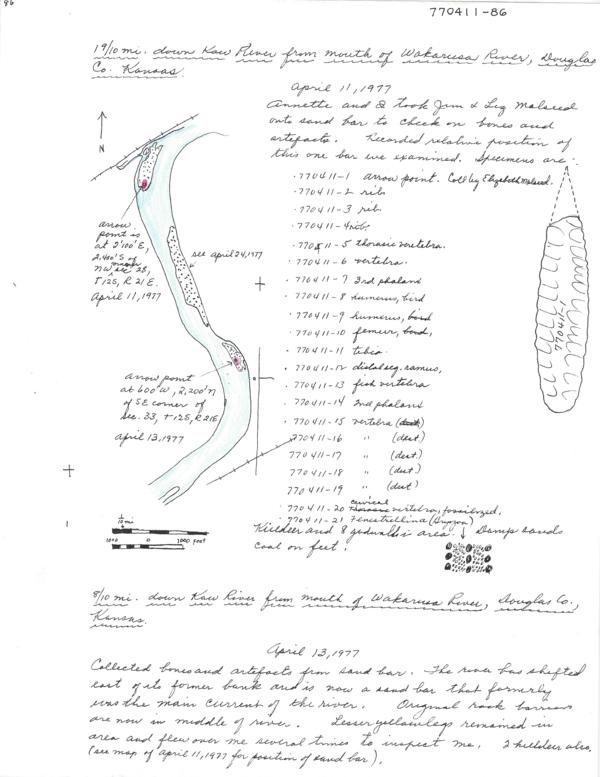 86
770411-86
1 9/10 mi. down Kaw River from mouth of Wakarusa River, Douglas
Co. Kansas.
April 11, 1977
Annette and I took Jim & Liz Malseed
onto sand bar to check on bones and
artefacts. Recorded relative position of
this one bar we examined. Specimens are:
N
.770411-1 arrow point. Coll by Elizabeth Malseed.
.770411-2 rib
.770411-3 rib.
.770411-4 rib.
.770411-5 thorasic vertebra.
.770411-6 vertebra.
.770411-7 3rd phalanx
.770411-8 humerus, bird
.770411-9 humerus, bird
.770411-10 femur, bird,
.770411-11 tibia
.770411-12 distal seg. ramus,
.770411-13 fish vertebra
.770411-14 2nd phalanx
.770411-15 vertebra (dest)
770411-16 " (dest.)
770411-17 " (dest.)
770411-18 " (dest.)
770411-19 " (dest)
.770411-20 cervical vertebra, fossilized.
.770411-21 Fenestrellina (Bryozoa)
Killdeer and 8 godwalls in area. ↓ Damp sands
coal on feet.
770411-1
arrow
point is
at 2'100'E,
2,400'S of
corner
NW sec 28,
T12S, R 21E.
April 11, 1977
see april 24, 1977
arrow point
at 600'W, 2,200'N
of SE corner of
sec. 33, T12S, R21E
april 13, 1977
1/10 mi
1000 0 1000 feet
8/10 mi. down Kaw River from mouth of Wakarusa River, Douglas Co.,
Kansas.
April 13, 1977
Collected bones and artefacts from sand bar. The river has shifted
east of its former bank and is now a sand bar that formerly
was the main current of the river. Original rock barriers
are now in middle of river. Lesser yellowlegs remained in
area and flew over me several times to inspect me. 2 killdeer also.
(see map of April 11, 1977 for position of sand bar).